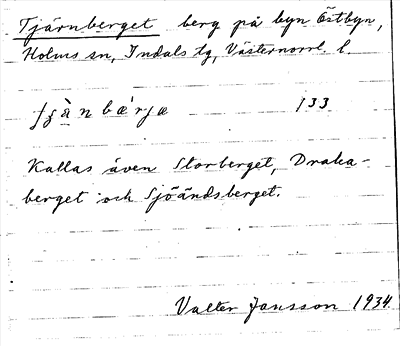 Tjärnberget berg på byn Östbyn,
Holms sn, Indals tg, Västernorrl. l.
133
Kallas även Storberget, Draka-
berget och Sjöändsberget.
Valter Jansson 1934.